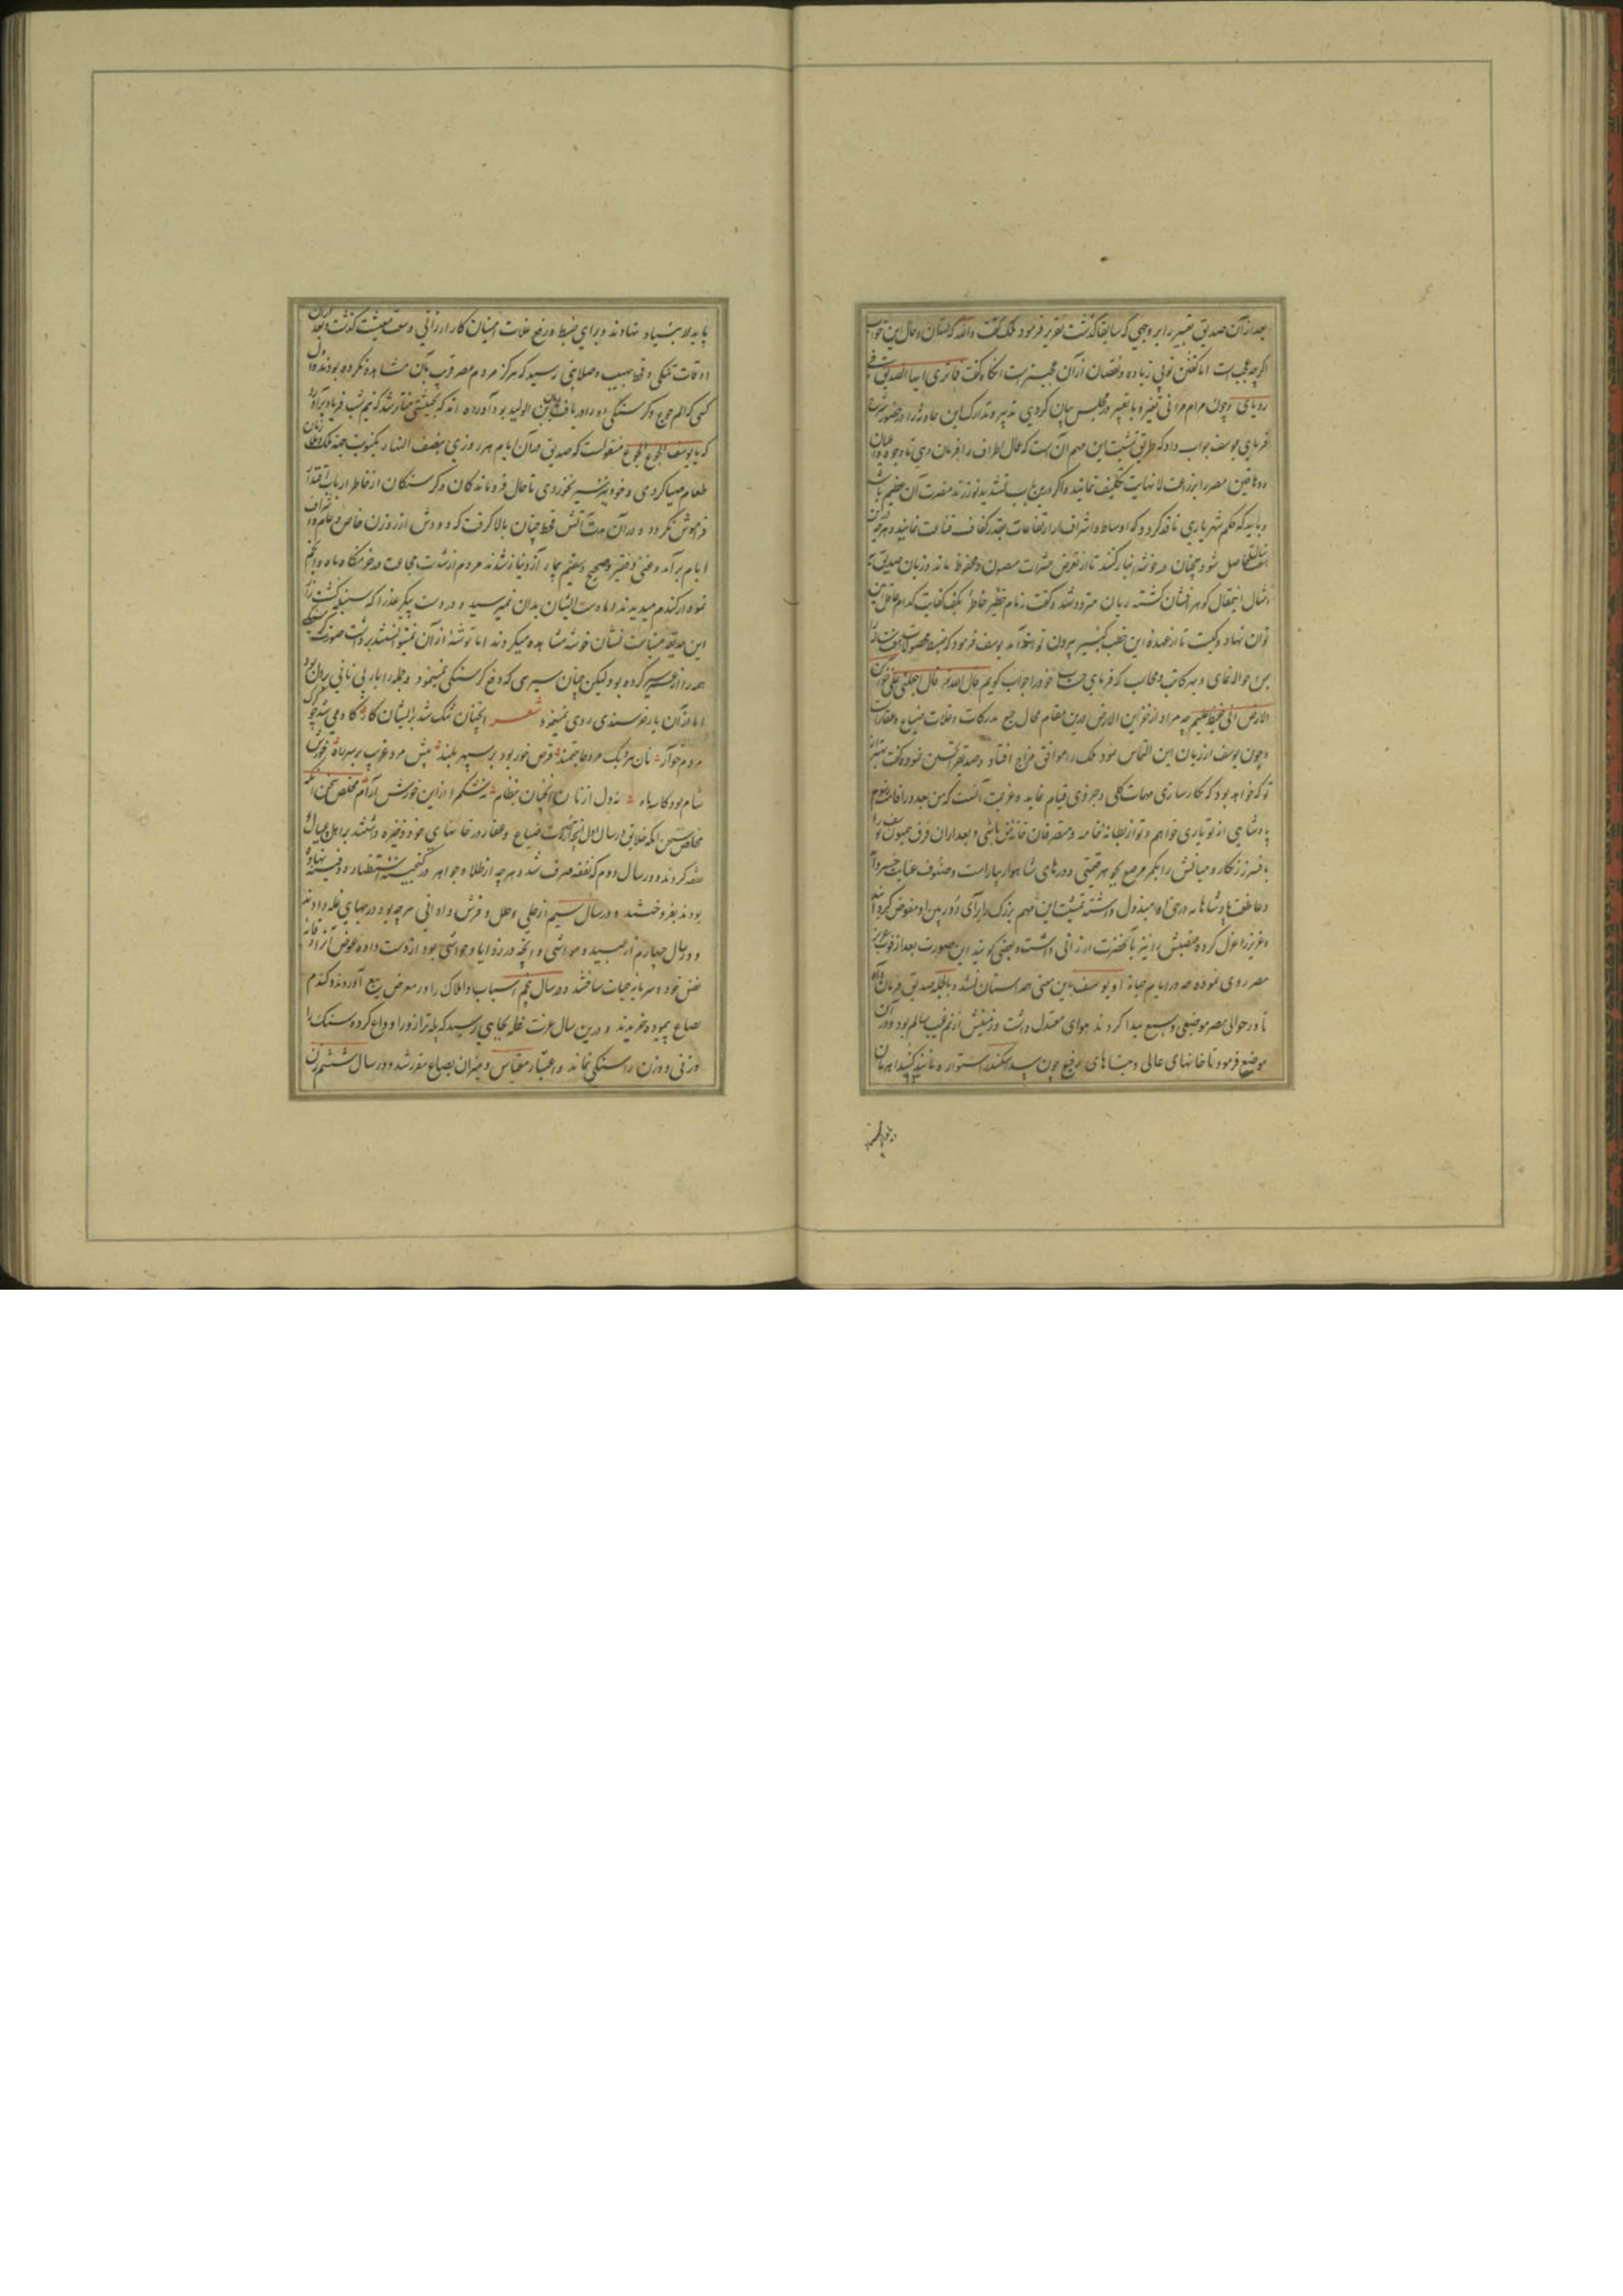 بعد از آن صدیق تعبیر را بر وجهی که سابقا گذشت تقریر فرمود ملک گفت والله که نشان و حال این خواب
اگرچه عجب است اما گفتن تو بی زیاده و نقصان از آن عجیبتر است آنگاه گفت فما تری ایها الصدیق فی
رویای و چون مرام مرا بی تغیر و با تعبیر در مجلس بیان کردی تدبیر و تدارک این حادثه را در حضور
فرمای یوسف جواب داد که طریق تمشیت این مهم آن است که عمال اطراف را فرمان دهی تا وجوه و اعیان
و دهاقین مصر را بزراعت لا نهایت تکلیف نمایند و اگر درین باب تشدید نورزند مضرت آن عظیم باشد
و باید که حکم شهریاری نافذ گردد که اوساط و اشراف از ارتفاعات بقدر کفاف قناعت نمایند و هر چه
حاصل شود همچنان در خوشه انبار کنند تا از تعرض حشرات مصون و محفوظ ماند و زبان صدیق
امثال این مقال گوهر افشان گشته ریان متردد شد و گفت زمام خطیر بکف کفایت کدام عاقل
توان نهاد و کیست تا از عهده این خطب کبیر بیرون تواند آمد یوسف فرمود که ضبط محصولات
بمن حواله نمای و هر کاتب و محاسب که فرمای حساب خود را جواب گویم قال الله قال اجعلنی علی خزائن
الارض انی حفیظ علیم چه مراد از خزاین الارض درین مقام محال جمع مدرکات و غلات ضیاع و عقارات
و چون یوسف از ریان این التماس نمود ملک را موافق مزاج افتاد و صدیق را تحسین نموده گفت بهتر از
تو که خواهد بود که کارسازی مهمات کلی و جزوی قیام نماید و عزیمت آنست که من بعد در اقامت رسوم
پادشاهی از تو یاری خواهم و تو از بطانه خاصه و متصرفان خانه من باشی و بعد از آن فرق همیون یوسف را
بافسر زرنگار و میانش را بکمر مرصع بجوهر قیمتی و درهای شاهوار بیاراست و صنوف عنایت خسروانه
و عاطفت پادشاهانه در حق او مبذول داشته تمشیت این مهم بزرگ را برای دوربین او مفوض گردانید
و عزیز را عزل کرده منصبش را نیز بآنحضرت ارزانی داشت و بعضی گویند این صورت بعد از فوت عزیز
مصر روی نموده چه در ایام حیاة او یوسف باین معنی همداستان نشد و بالجمله صدیق فرمان داد
تا در حوالی مصر موضعی وسیع پیدا کردند هوای معتدل داشت و زمینش از نم غیب سالم بود و در آن
موضع فرمود تا خانهای عالی و بناهای رفیع چون سد سکندر استوار و مانند گنبد اهرمان
پایدار بنیاد نهادند و برای ضبط و رفع غلات امینان کار ارزانی وسعت معیشت گذشت و بعد از آن
اوقات تنگی و قحط مهیب و صلابتی رسید که هرگز مردم مصر قریب بآن مشاهده نکرده بودند و اول
کسی که الم جوع و گرسنگی او را دریافت ریان بن الولید بود آورده اند که بحیثیتی متاثر شد که نیم شب فریاد برآورد
که یا یوسف الجوع الجوع منقولست که صدیق در آن ایام هر روزی بنصف النهار یکنوبت جهة ملک ریان
طعام مهیا کردی و خود هرگز سیر نخوردی تا حال فروماندگان و گرسنگان از خاطر ارباب اقتدار
فراموش نگردد و در آن مدت آتش قحط چنان بالا گرفت که دودش از روزن خاص و عام و اشراف
ایام برآمد و غنی و فقیر و صحیح و سقیم بیمار آز و نیاز شدند مردم از شدت مجاعت در خرمنگاه ماه و انجم
نموداری از گندم میدیدند اما دست ایشان بدان نمیرسید و در دست پیکر عذرا که سنبله گشت زار
این حدیقه میناست نشان خوشه مشاهده میکردند اما توشه از آن نمیتوانستند برداشت صورت گرسنگی
همه را از عمر سیر کرده بود لیکن چنان سیری که دفع گرسنگی نمینمود و دجله را بار بی نانی بر دل بود
اما از آن بار خرسندی روی نمینمود شعر آنچنان تنگ شد بر ایشان کار که گاه می شد چو گرگ
مردم خوار نان هر یک مرد حاجتمند قرص خور بود بر سپهر بلند پیش مرد غریب بر سر راه خورش
شام بود کاسه ماه نه دل از نان آنچنان بنظام نه شکم را از این خورش آرام مخلص سخن آنکه
خلایق در سال اول آنچه از غلات ضیاع و عقار در خانهای خود ذخیره داشتند بر اهل و عیال
نفقه کردند و در سال دوم که نفقه صرف شد و هر چه از طلا و جواهر در گنجینه استظهار و دفینه نهاده
بودند بفروختند و در سال سیم از حلی و حلل و فرش و اوانی هر چه بود در بهای غله دادند
و در سال چهارم از عبید و مواشی و آنچه در زوایا و حواشی بود از دست داده عوض آنرا وقایه
نفس خود و سرمایه حیات ساختند و در سال پنجم اسباب و املاک را در معرض بیع آوردند و گندم
بصاع پیموده خریدند و درین سال عزت غله بجایی رسید که پله ترازو را وداع کرده سنگ را
وزنی و وزن را سنگی نماند و اعتبار مقیاس و میزان بصاع مقرر شد و در سال ششم زن